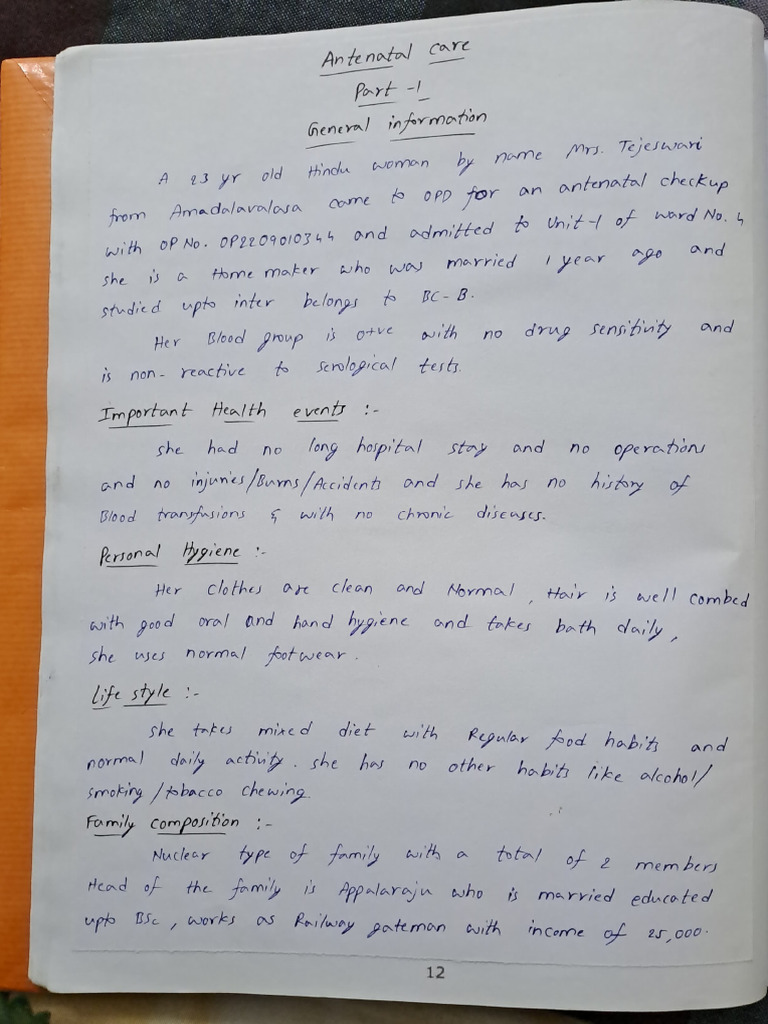 Antenatal care
Part -1
General information
A 23 yr old Hindu woman by name Mrs. Tejeswari
from Amadalavalasa came to OPD for an antenatal checkup
with OP No. OP2209010344 and admitted to Unit-1 of ward No. 4
she is a Home maker who was married 1 year ago and
studied upto inter belongs to BC-B.
Her Blood group is O+ve with no drug sensitivity and
is non-reactive to serological tests.
Important Health events :-
she had no long hospital stay and no operations
and no injuries/Burns/Accidents and she has no history of
Blood transfusions & with no chronic diseases.
Personal Hygiene :-
Her clothes are clean and Normal, Hair is well combed
with good oral and hand hygiene and takes bath daily,
she uses normal footwear.
Life style :-
she takes mixed diet with Regular food habits and
normal daily activity. she has no other habits like alcohol/
smoking/tobacco chewing
Family composition :-
Nuclear type of family with a total of 2 members
Head of the family is Appalaraju who is married educated
upto BSc, works as Railway gateman with income of 25,000.
12